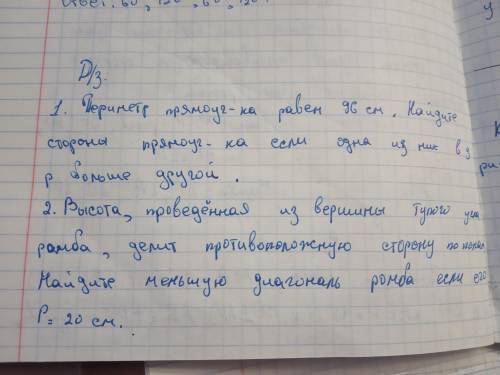 Ответ: 60, 120, 60, 120.
Д/з.
1. Периметр прямоуг-ка равен 96 см. Найдите
стороны прямоуг-ка если одна из них в 3
р больше другой.
2. Высота, проведённая из вершины тупого угла
ромба, делит противоположную сторону по полам
Найдите меньшую диагональ ромба если его
P = 20 см.